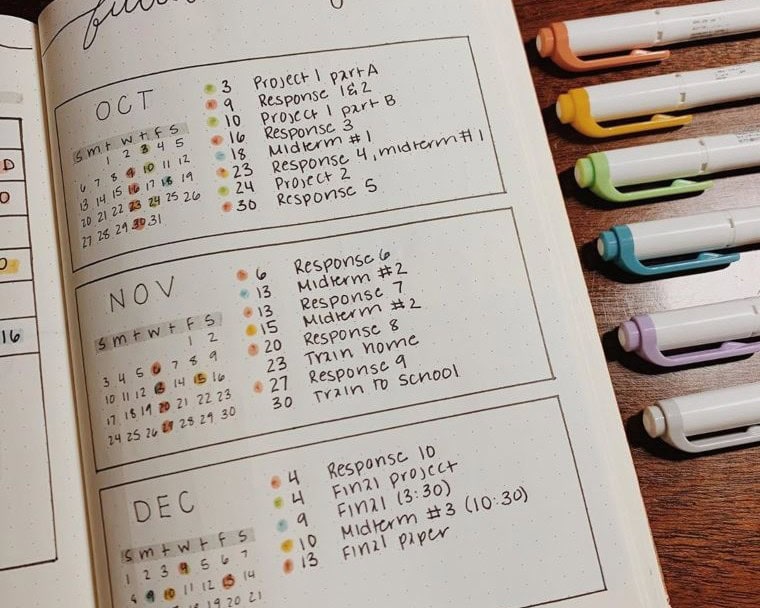 D
O
O
16
OCT
S M T W T F S
1 2 3 4 5
6 7 8 9 10 11 12
13 14 15 16 17 18 19
20 21 22 23 24 25 26
27 28 29 30 31
3 Project 1 part A
9 Response 1&2
10 Project 1 part B
16 Response 3
18 Midterm #1
23 Response 4, midterm #1
24 Project 2
30 Response 5
NOV
S M T W T F S
1 2
3 4 5 6 7 8 9
10 11 12 13 14 15 16
17 18 19 20 21 22 23
24 25 26 27 28 29 30
6 Response 6
13 Midterm #2
13 Response 7
15 Midterm #2
20 Response 8
23 Train home
27 Response 9
30 Train to school
DEC
S M T W T F S
1 2 3 4 5 6 7
8 9 10 11 12 13 14
18 19 20 21
4 Response 10
4 Final project
9 Final (3:30)
10 Midterm #3 (10:30)
13 Final paper